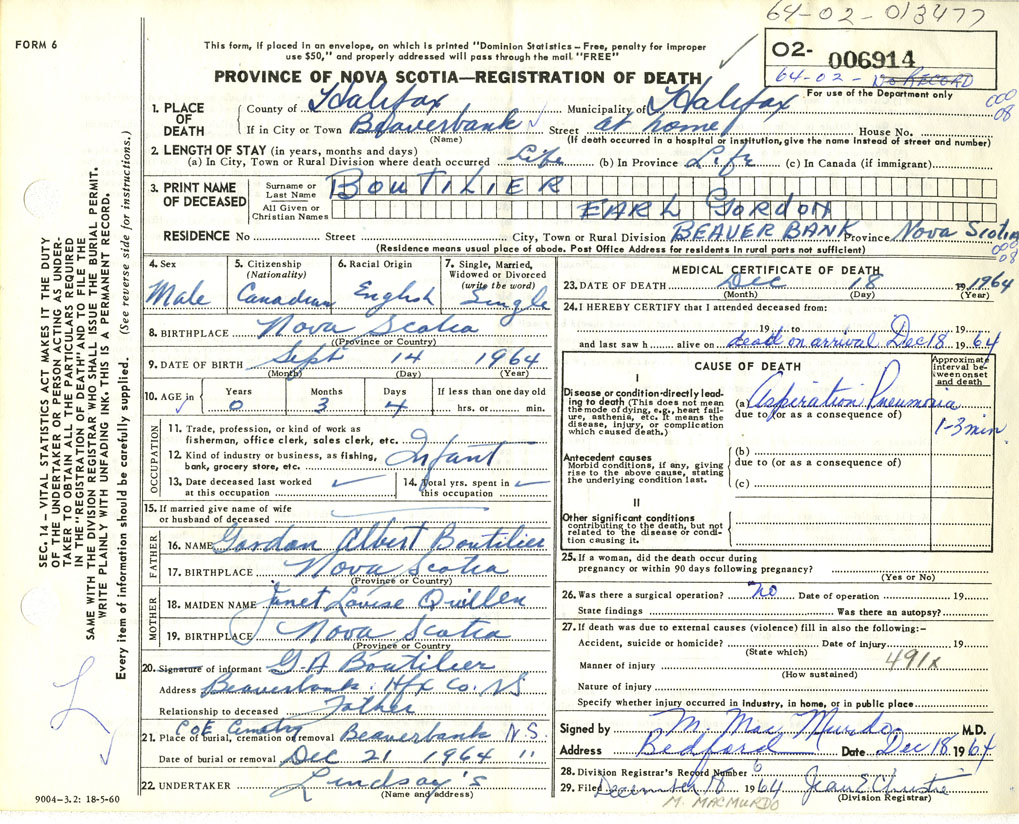 64-02-013477
FORM 6
This form, if placed in an envelope, on which is printed "Dominion Statistics – Free, penalty for improper
use $50," and properly addressed will pass through the mail "FREE"
02- 006914
64-02- No RECORD
For use of the Department only
PROVINCE OF NOVA SCOTIA—REGISTRATION OF DEATH
000
08
1. PLACE OF DEATH
County of Halifax Municipality of Halifax
If in City or Town Beaverbank Street at home House No.
(Name) (If death occurred in a hospital or institution, give the name instead of street and number)
2. LENGTH OF STAY (in years, months and days)
(a) In City, Town or Rural Division where death occurred Life (b) In Province Life (c) In Canada (if immigrant)
3. PRINT NAME OF DECEASED
Surname or Last Name BOUTILIER
All Given or Christian Names EARL GORDON
RESIDENCE No Street City, Town or Rural Division BEAVER BANK Province Nova Scotia
(Residence means usual place of abode. Post Office Address for residents in rural parts not sufficient)
000
08
4. Sex Male
5. Citizenship (Nationality) Canadian
6. Racial Origin English
7. Single, Married, Widowed or Divorced (write the word) Single
8. BIRTHPLACE Nova Scotia
(Province or Country)
9. DATE OF BIRTH Sept 14 1964
(Month) (Day) (Year)
10. AGE in Years 0 Months 3 Days 4 If less than one day hrs. or min.
OCCUPATION
11. Trade, profession, or kind of work as
fisherman, office clerk, sales clerk, etc.
12. Kind of industry or business, as fishing,
bank, grocery store, etc. Infant
13. Date deceased last worked
at this occupation
14. Total yrs. spent in
this occupation
15. If married give name of wife
or husband of deceased
FATHER
16. NAME Gordon Albert Boutilier
17. BIRTHPLACE Nova Scotia
(Province or Country)
MOTHER
18. MAIDEN NAME Janet Louise Quillen
19. BIRTHPLACE Nova Scotia
(Province or Country)
20. Signature of informant G A Boutilier
Address Beaverbank Hfx Co. NS
Relationship to deceased Father
CoE Cemetry
21. Place of burial, cremation or removal Beaverbank N.S.
Date of burial or removal Dec 21 1964 "
22. UNDERTAKER Lindsay's
(Name and address)
9004-3.2: 18-5-60
MEDICAL CERTIFICATE OF DEATH
23. DATE OF DEATH Dec 18 19 1964
(Month) (Day) (Year)
24. I HEREBY CERTIFY that I attended deceased from:
19 to 19
and last saw h alive on dead on arrival Dec 18 1964
CAUSE OF DEATH
Approximate
interval between onset
and death
I
Disease or condition directly leading to death (This does not mean
the mode of dying, e.g., heart failure, asthenia, etc. It means the
disease, injury, or complication
which caused death.)
(a) Aspiration Pneumonia
due to (or as a consequence of)
1-3 min
Antecedent causes
Morbid conditions, if any, giving
rise to the above cause, stating
the underlying condition last.
(b)
due to (or as a consequence of)
(c)
II
Other significant conditions
contributing to the death, but not
related to the disease or condition causing it.
25. If a woman, did the death occur during
pregnancy or within 90 days following pregnancy?
(Yes or No)
26. Was there a surgical operation? no Date of operation 19
State findings Was there an autopsy?
27. If death was due to external causes (violence) fill in also the following:–
Accident, suicide or homicide? Date of injury 19
(State which)
Manner of injury 491x
(How sustained)
Nature of injury
Specify whether injury occurred in industry, in home, or in public place
Signed by M. Mac Murdo M.D.
Address Bedford Date Dec 18 1964
28. Division Registrar's Record Number 6
29. Filed December 18 1964 Jean E Christie
(Division Registrar)
M. MACMURDO
SEC. 14 – VITAL STATISTICS ACT MAKES IT THE DUTY
OF THE UNDERTAKER OR PERSON ACTING AS UNDERTAKER TO OBTAIN ALL THE PARTICULARS REQUIRED
IN THE "REGISTRATION OF DEATH" AND TO FILE THE
SAME WITH THE DIVISION REGISTRAR WHO SHALL ISSUE THE BURIAL PERMIT.
WRITE PLAINLY WITH UNFADING INK. THIS IS A PERMANENT RECORD.
Every item of information should be carefully supplied. (See reverse side for instructions.)